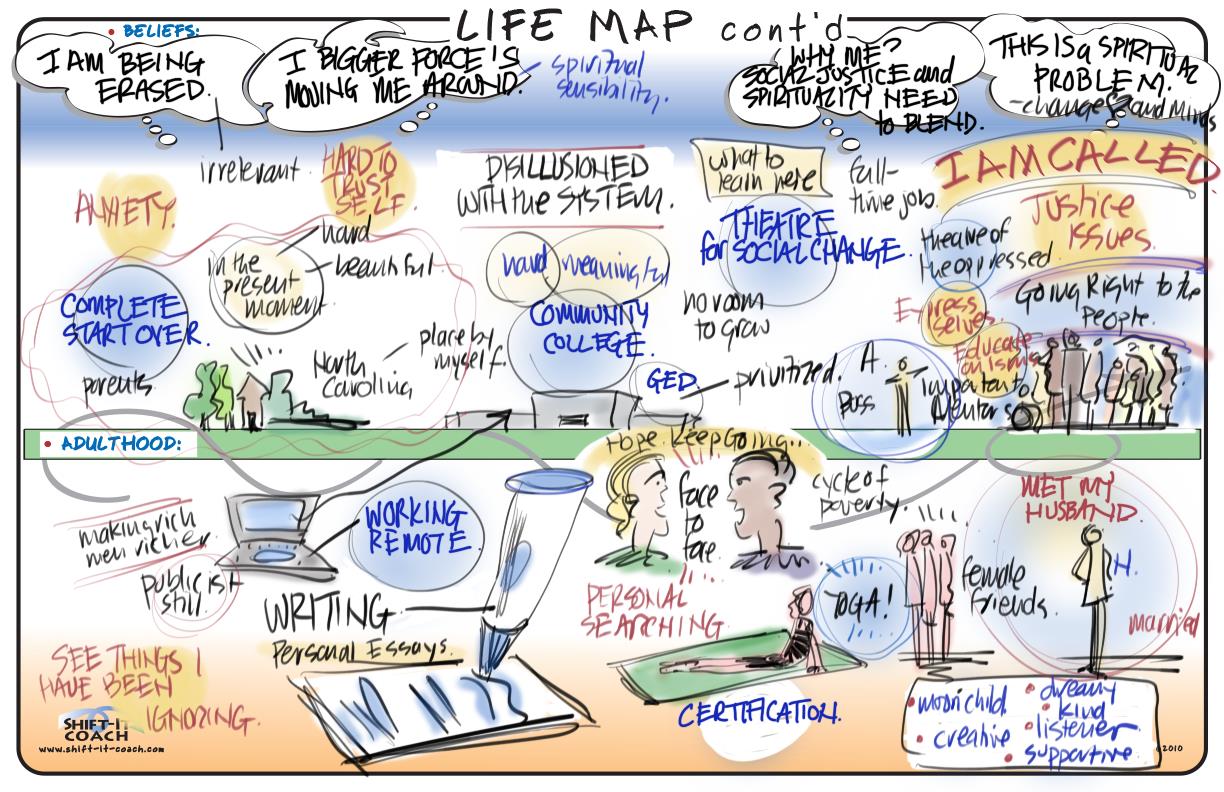 LIFE MAP cont'd
• BELIEFS:
I AM BEING
ERASED.
I BIGGER FORCE IS
MOVING ME AROUND.
spiritual
sensibility.
WHY ME?
SOCIAL JUSTICE and
SPIRITUALITY NEED
to BLEND.
THIS IS a SPIRITUAL
PROBLEM.
-change and minds
irrelevant
ANXIETY.
HARD TO
TRUST
SELF.
DISILLUSIONED
WITH the SYSTEM.
what to
learn here
full-
time job.
I AM CALLED
JUSTICE
ISSUES.
hard
beautiful
in the
present
moment.
COMPLETE
START OVER.
parents
North
Carolina
place by
myself.
hard meaningful
COMMUNITY
COLLEGE.
THEATRE
for SOCIAL CHANGE.
no room
to grow
GED.
prioritized.
theatre of
the oppressed
Express
selves.
Educate
on isms
Going Right to the
People.
A.
Boss
important
Mentors
• ADULTHOOD:
making rich
men richer.
publicist
still.
WORKING
REMOTE.
WRITING
Personal Essays.
SEE THINGS I
HAVE BEEN
IGNORING.
Hope. Keep Going...
face
to
face.
cycle of
poverty.
PERSONAL
SEARCHING.
YOGA!
CERTIFICATION.
female
friends.
MET MY
HUSBAND.
H.
married
• moonchild
• creative
• dreamy
• kind
• listener
• supportive
SHIFT-IT
COACH
www.shift-it-coach.com
©2010